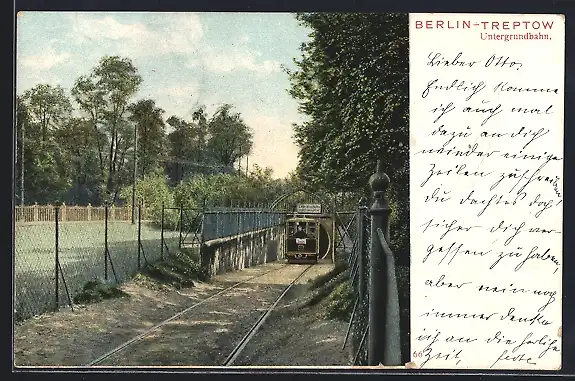 BERLIN-TREPTOW
Untergrundbahn.
Lieber Otto.
Endlich komme
ich auch mal
dazu an dich
wieder einige
Zeilen zu schreiben
Du dachtest doch
sicher dich ver
gessen zu haben,
aber nein noch
immer denke
ich an die herliche
Zeit,
66